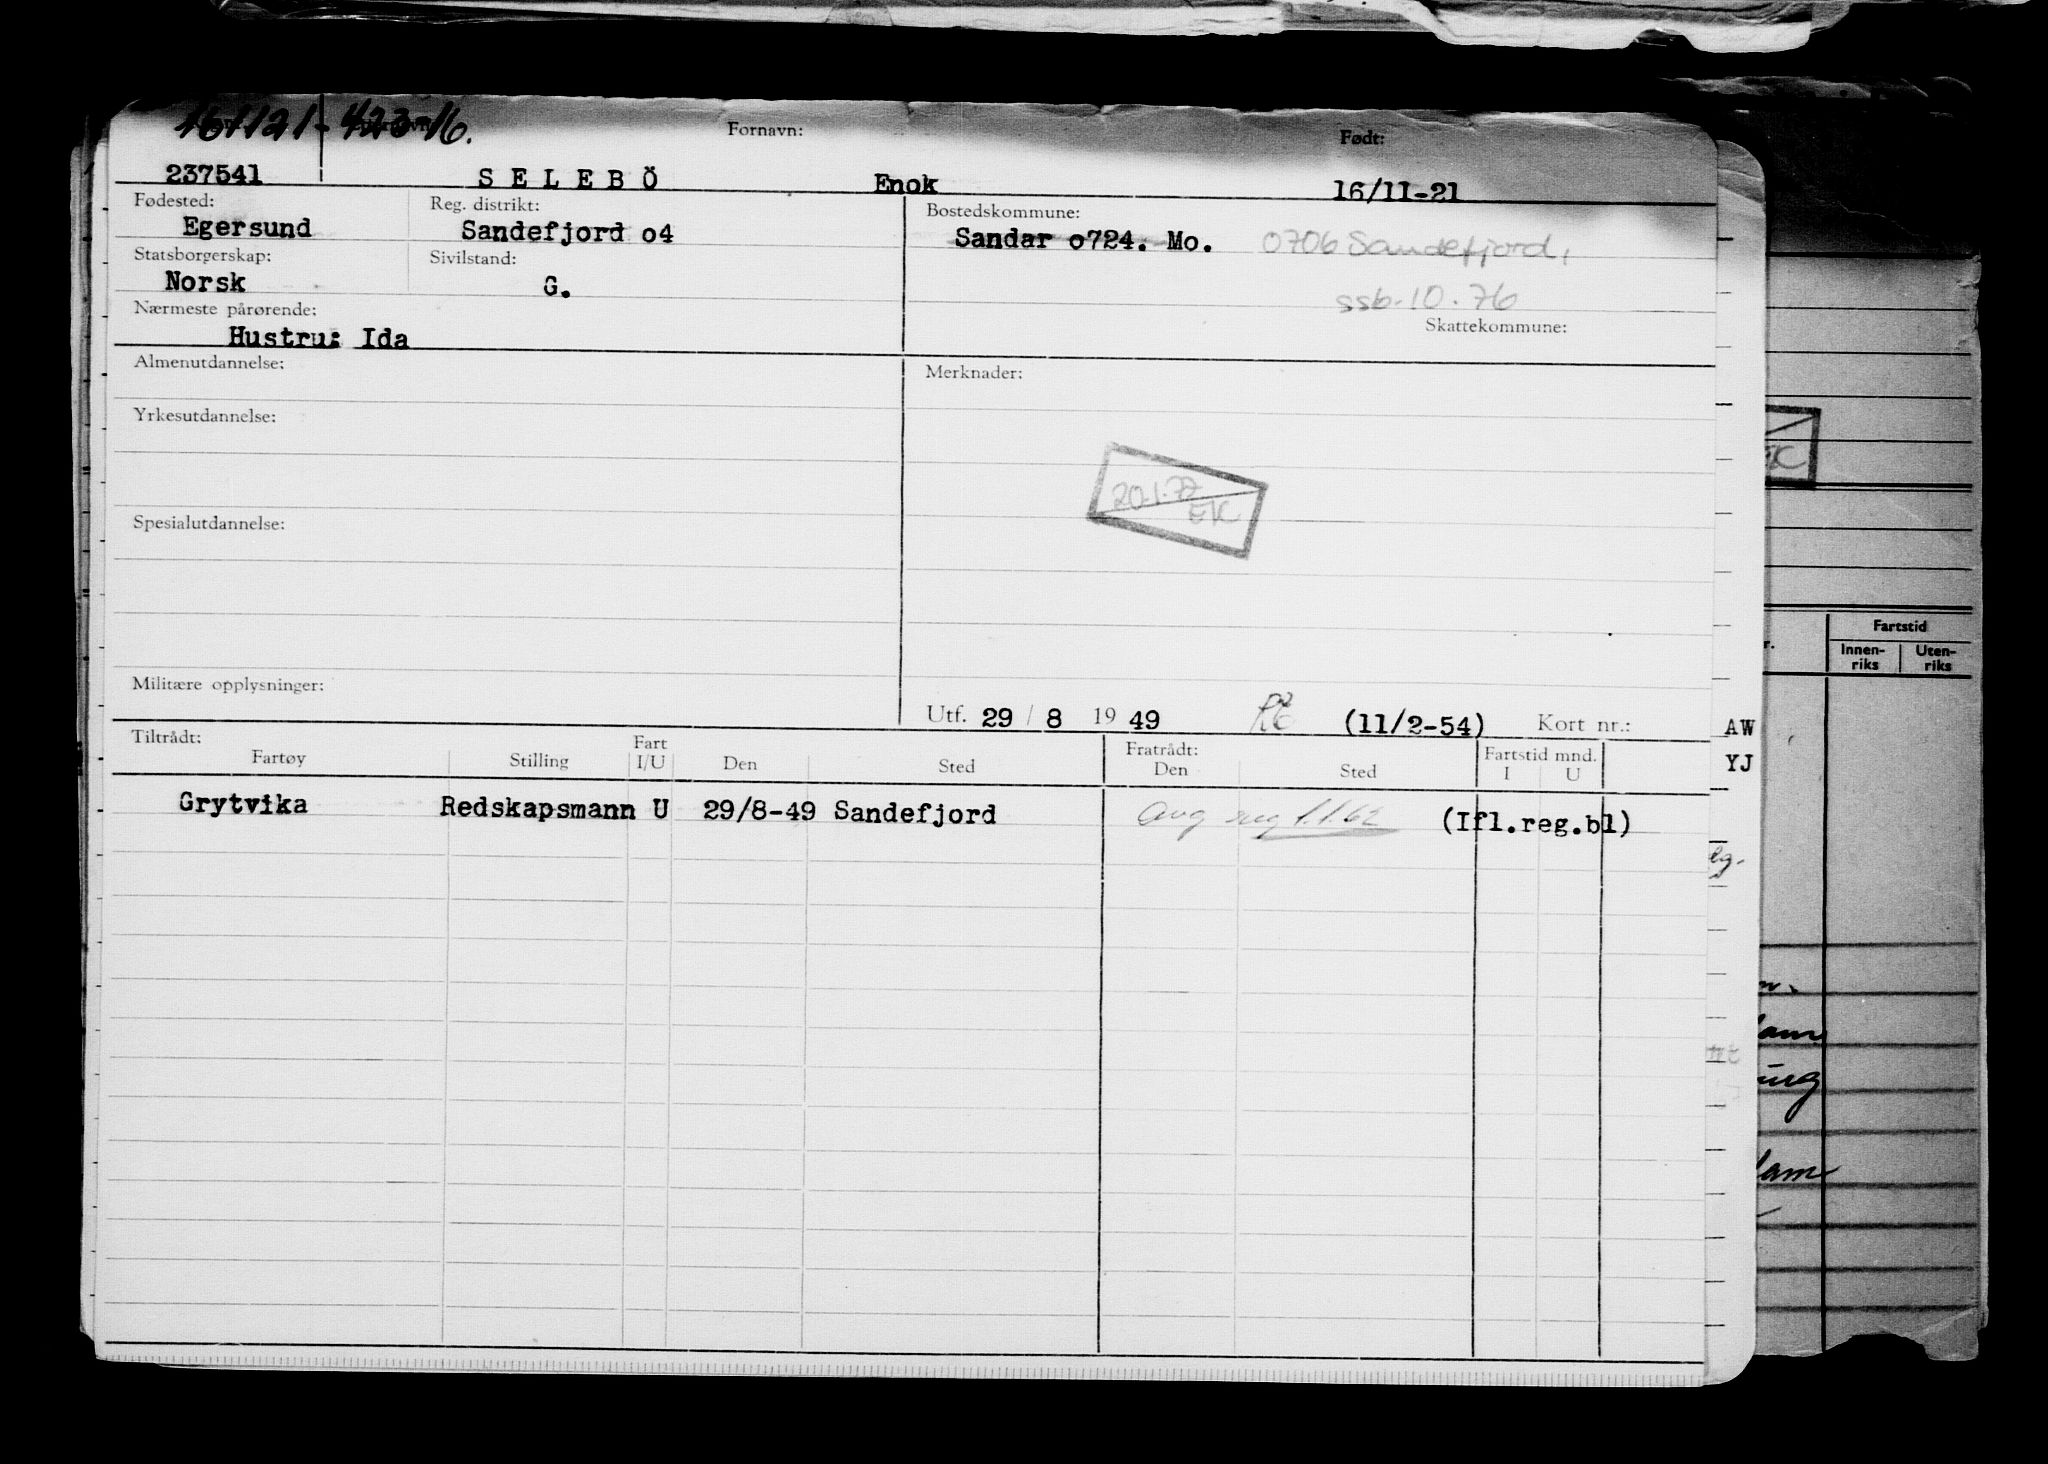 161121-423-16.
Fornavn: Født:
237541 SELEBÖ Enok 16/11-21
Fødested: Reg. distrikt: Bostedskommune:
Egersund Sandefjord o4 Sandar o724. Mo. 0706 Sandefjord,
Statsborgerskap: Sivilstand:
Norsk G. ssb-10.76
Nærmeste pårørende: Skattekommune:
Hustru: Ida
Almenutdannelse: Merknader:
Yrkesutdannelse:
20.1.77
EK
Spesialutdannelse:
Militære opplysninger:
Utf. 29 / 8 19 49 (11/2-54) Kort nr.:
AW
YJ
Tiltrådt: Fratrådt:
Fartøy Stilling Fart I/U Den Sted Den Sted Fartstid mnd. I U
Grytvika Redskapsmann U 29/8-49 Sandefjord avg reg 1.1.62 (Ifl.reg.bl)
EK
Fartstid
Innen-riks Uten-riks